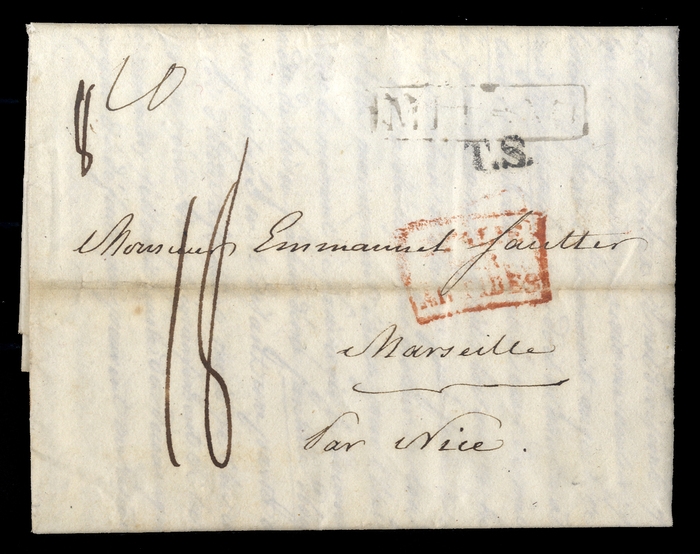 20
MILANO
T.S.
Monsieur Emmanuel Gautier
ANTIBES
18
Marseille
Par Nice.